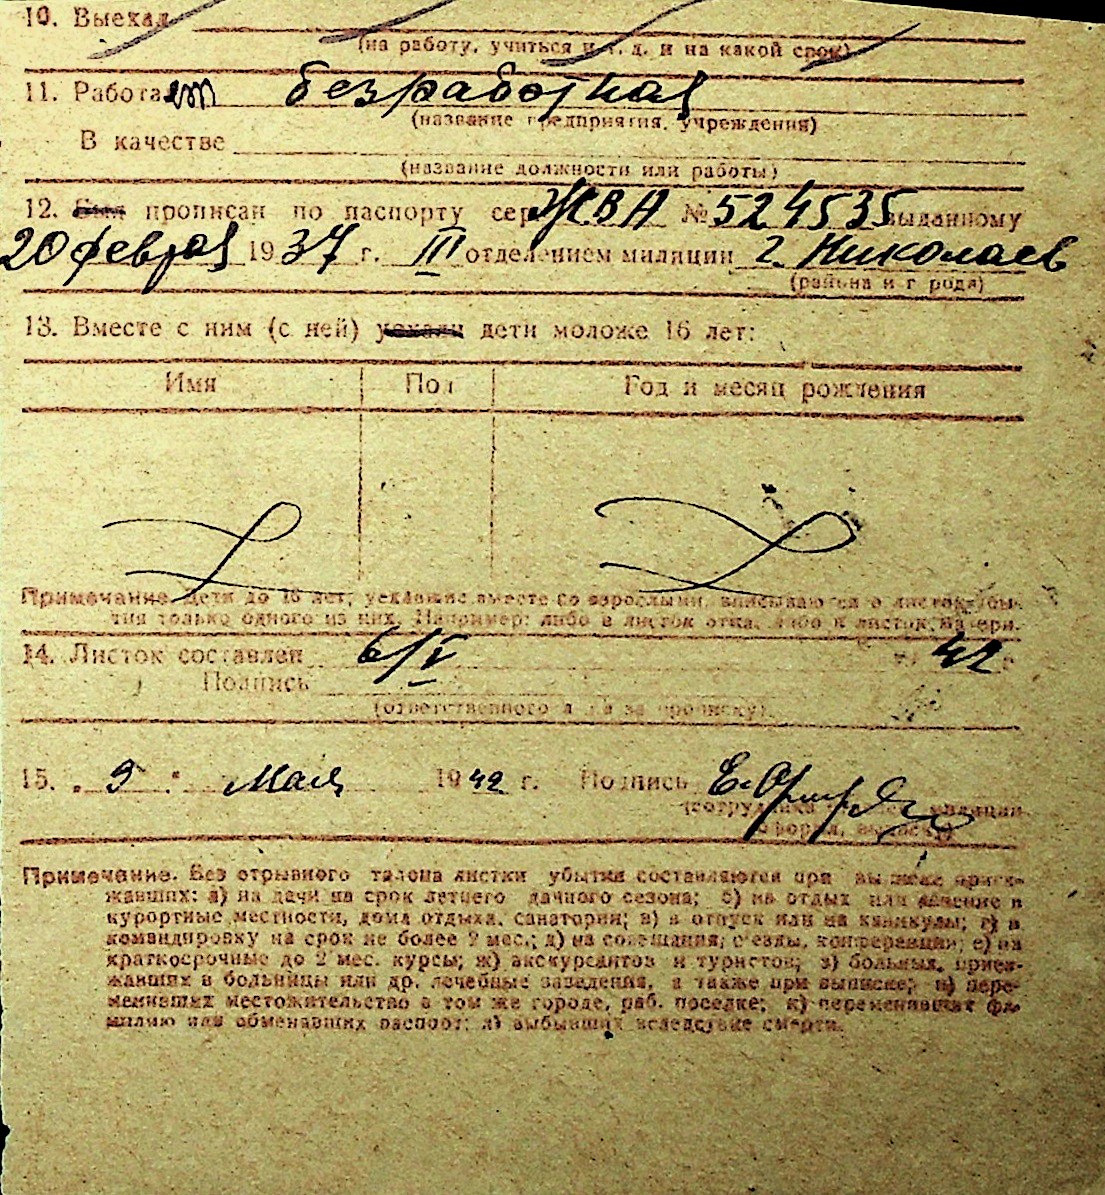 10. Выехал
(на работу, учиться и т. д. и на какой срок)
11. Работает безработная
(название предприятия, учреждения)
В качестве
(название должности или работы)
12. Был прописан по паспорту сер. ЖВА № 524535 выданному
20 февраля 1937 г. III отделением милиции г. Николаев
(района и города)
13. Вместе с ним (с ней) уехали дети моложе 16 лет:
Имя Пол Год и месяц рождения
Примечание. Дети до 16 лет, уехавшие вместе со взрослыми, вписываются в листок убы-
тия только одного из них. Например: либо в листок отца, либо в листок матери.
14. Листок составлен 6/V 42
Подпись
(ответственного за прописку)
15. „ 9 " мая 1942 г. Подпись Е.
(сотрудника милиции
Примечание. Без отрывного талона листки убытия составляются при выписке приез-
жавших: а) на дачи на срок летнего дачного сезона; б) на отдых или лечение в
курортные местности, дома отдыха, санатории; в) в отпуск или на каникулы; г) в
командировку на срок не более 2 мес.; д) на совещания, съезды, конференции; е) на
краткосрочные до 2 мес. курсы; ж) экскурсантов и туристов; з) больных, приез-
жавших в больницы или др. лечебные заведения, а также при выписке; и) пере-
менивших местожительство в том же городе, раб. поселке; к) переменивших фа-
милию или обменявших паспорт; л) выбывших вследствие смерти.